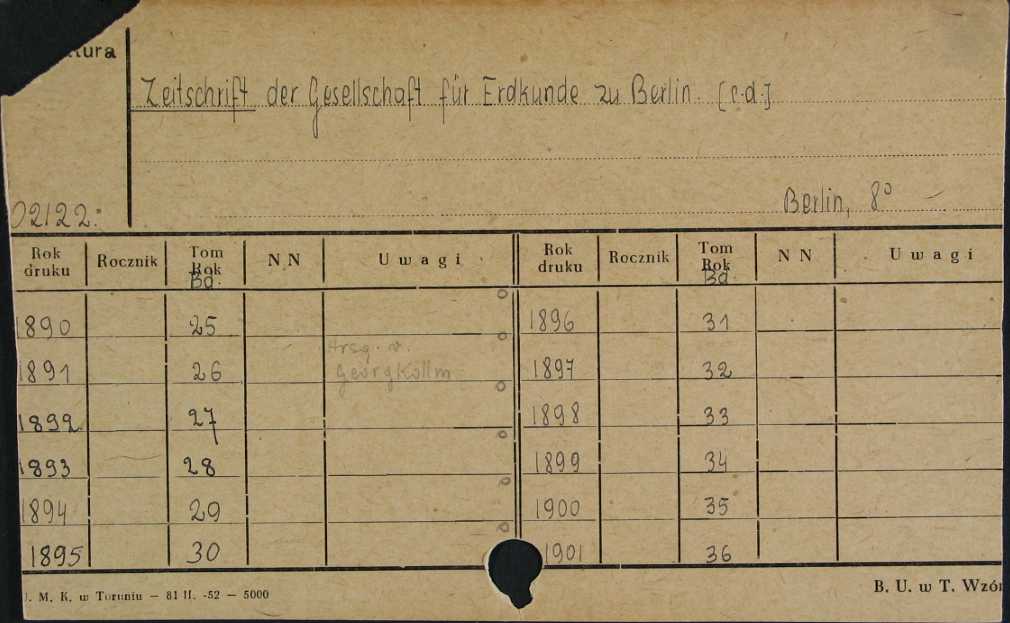 Zeitschrift der Gesellschaft für Erdkunde zu Berlin. [c.d.]
Berlin, 8°
02122.
Rok druku Rocznik Tom Rok Bd. NN Uwagi Rok druku Rocznik Tom Rok Bd. NN Uwagi
1890 25 1896 31
1891 26 Hrsg. v. Georg Kollm 1897 32
1892 27 1898 33
1893 28 1899 34
1894 29 1900 35
1895 30 1901 36
M. K. w Toruniu — 81 II. -52 — 5000
B. U. w T. Wzór